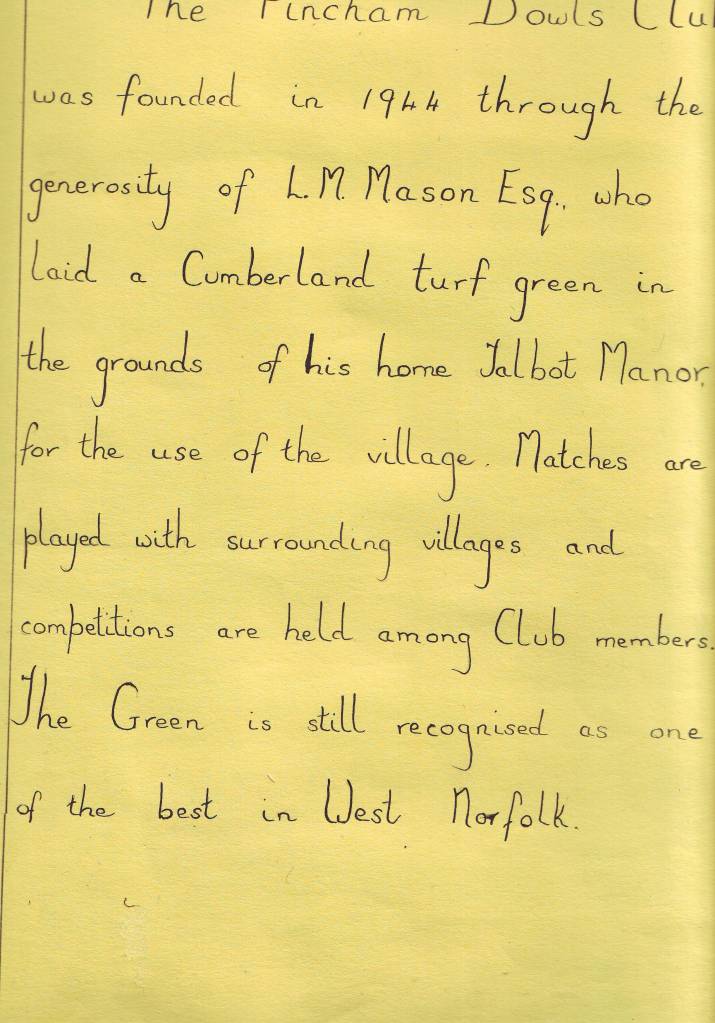 The Fincham Bowls Club
was founded in 1944 through the
generosity of L.M. Mason Esq., who
laid a Cumberland turf green in
the grounds of his home Talbot Manor,
for the use of the village. Matches are
played with surrounding villages and
competitions are held among Club members.
The Green is still recognised as one
of the best in West Norfolk.